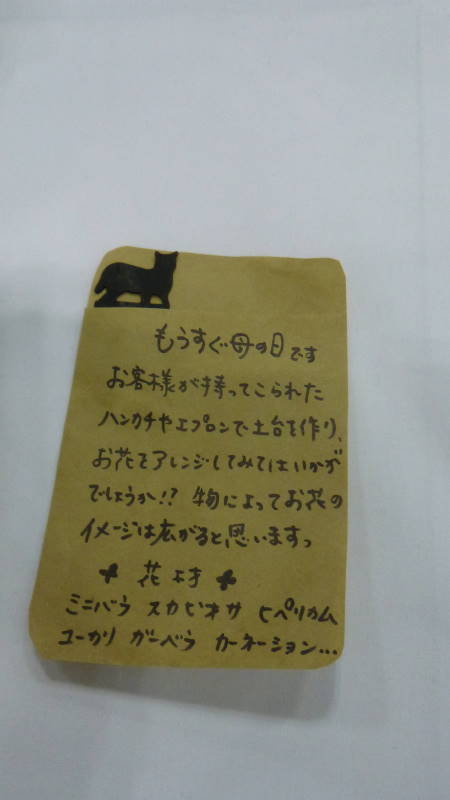 もうすぐ母の日です
お客様が持ってこられた
ハンカチやエプロンで土台を作り、
お花をアレンジしてみてはいかがで
でしょうか!? 物によってお花の
イメージは広がると思いますっ
✤ 花材 ✤
ミニバラ スカビオサ ヒペリカム
ユーカリ ガーベラ カーネーション...